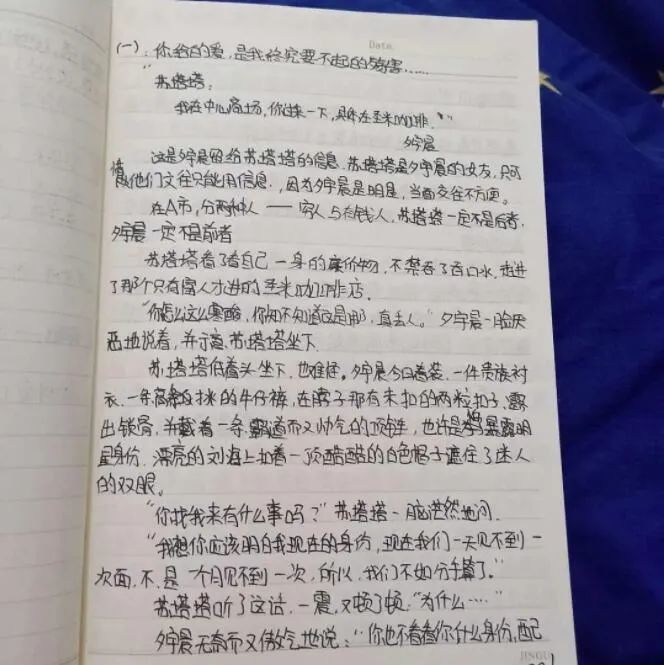 Date.
(一): 你给的爱,是我终究要不起的伤害……
"苏塔塔:
我在中心商场,你过来一下,具体在圣米咖啡."
夕宇晨
这是夕宇晨留给苏塔塔的信息.苏塔塔是夕宇晨的女友,只可
惜他们交往只能用信息,因为夕宇晨是明星,当面交往不方便。
在A市,分两种人——穷人与有钱人,苏塔塔一定不是后者,
夕宇晨一定不是前者
苏塔塔看了看自己一身的廉价物,不禁吞了百口水,走进
了那个只有富人才进的圣米咖啡店.
"你怎么这么寒酸,你知不知道这是那,真丢人。"夕宇晨一脸厌
恶地说着,并示意苏塔塔坐下.
苏塔塔低着头坐下.也难怪.夕宇晨今日着装.一件贵族衬
衣.一条高的牛仔裤,在脖子那有未扣的两粒扣子.露
出锁骨,并戴着一条霸道而又帅气的项链,也许是怕暴露明
星身份.漂亮的刘海上扣着一顶酷酷的白色帽子遮住了迷人
的双眼。
"你找我来有什么事吗?"苏塔塔一脸茫然地问.
"我想你应该明白我现在的身份,现在我们一天见不到一
次面.不.是一个月见不到一次,所以.我们不如分手算了。"
苏塔塔听了这话.一震,又顿了顿."为什么……"
夕宇晨无奈而又傲气地说:"你也不看看你什么身份,配
JINGU